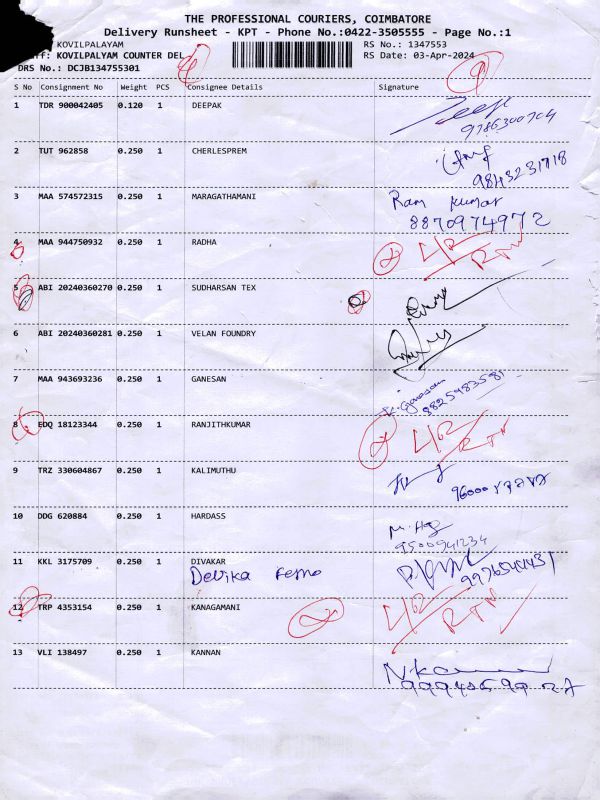 THE PROFESSIONAL COURIERS, COIMBATORE
Delivery Runsheet - KPT - Phone No.:0422-3505555 - Page No.:1
KOVILPALAYAM RS No.: 1347553
KOVILPALYAM COUNTER DEL RS Date: 03-Apr-2024
DRS No.: DCJB134755301
S No Consignment No Weight PCS Consignee Details Signature
1 TDR 900042405 0.120 1 DEEPAK
9786300704
2 TUT 962858 0.250 1 CHERLESPREM
9843231718
3 MAA 574572315 0.250 1 MARAGATHAMANI Ram kumar
8870974972
4 MAA 944750932 0.250 1 RADHA
RTN
5 ABI 20240360270 0.250 1 SUDHARSAN TEX
6 ABI 20240360281 0.250 1 VELAN FOUNDRY
7 MAA 943693236 0.250 1 GANESAN
8825983581
8 EDQ 18123344 0.250 1 RANJITHKUMAR
RTN
9 TRZ 330604867 0.250 1 KALIMUTHU
10 DDG 620884 0.250 1 HARDASS
9500941234
11 KKL 3175709 0.250 1 DIVAKAR
Devika
12 TRP 4353154 0.250 1 KANAGAMANI
RTN
13 VLI 138497 0.250 1 KANNAN